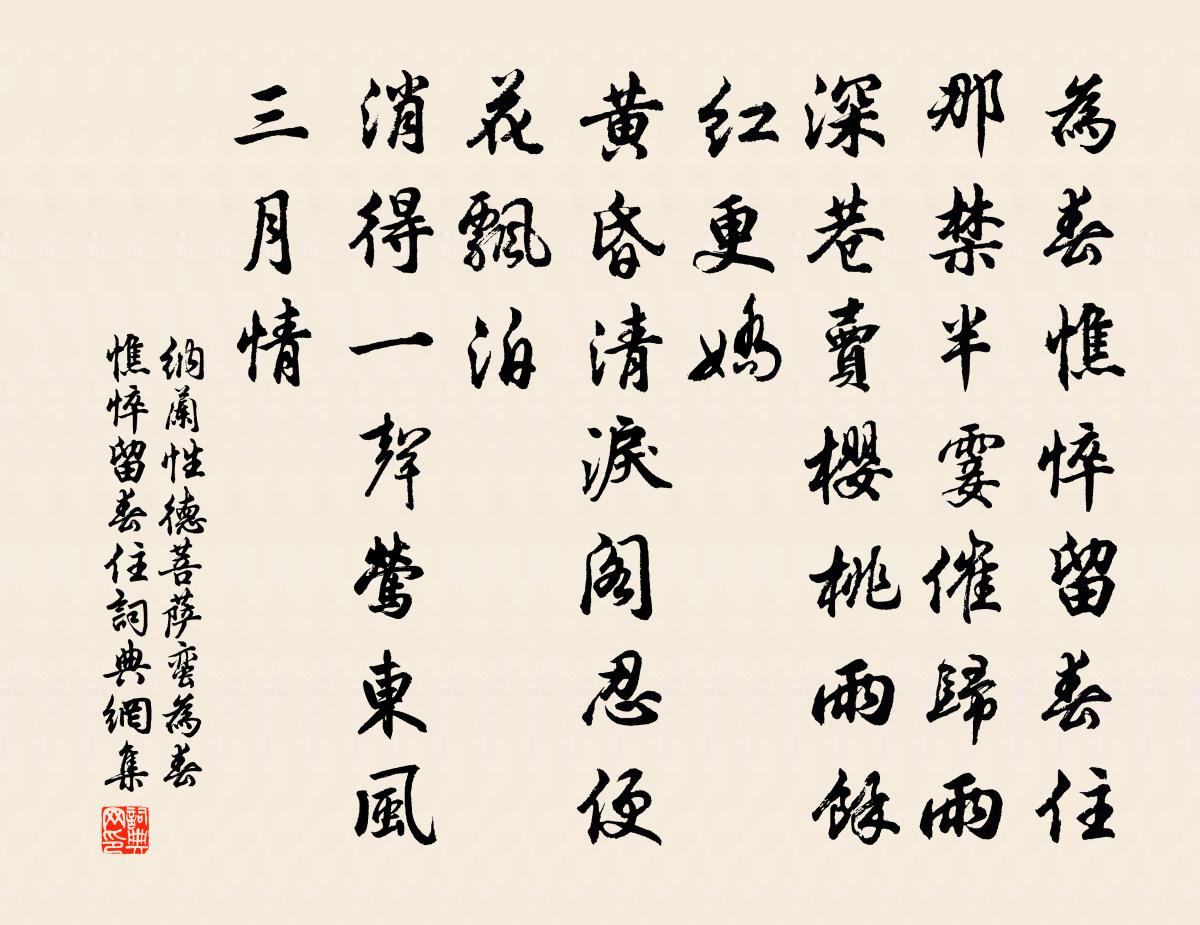 為春憔悴留春住
那禁半霎催歸雨
深巷賣櫻桃雨餘
紅更嬌
黄昏清淚閣忍便
花飄泊
消得一聲鶯東風
三月情
納蘭性德菩萨蛮為春
憔悴留春住詞典網集
詞典
网印